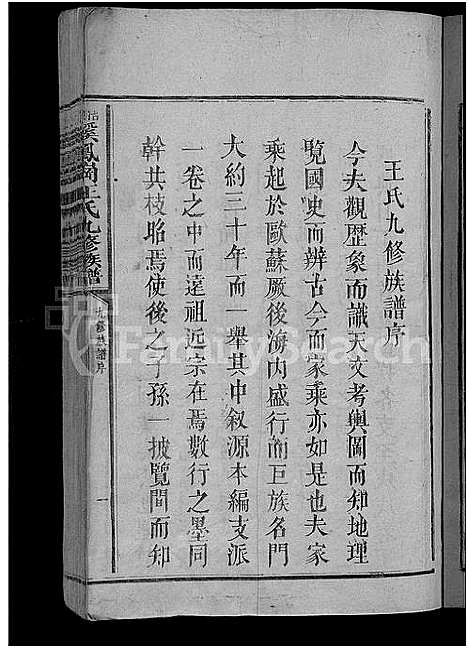 王氏九修族譜序
今夫觀歷象而識天文考輿圖而知地理
覽國史而辨古今而家乘亦如是也夫家
乘起於歐蘇厥後海內盛行而巨族名門
大約三十年而一舉其中叙源本編支派
一卷之中而遠祖近宗在焉數行之墨同
幹共枝昭焉使後之子孫一披覽間而知
溪鳳崗王氏九修族譜
九修族譜序
一
FamilySearch